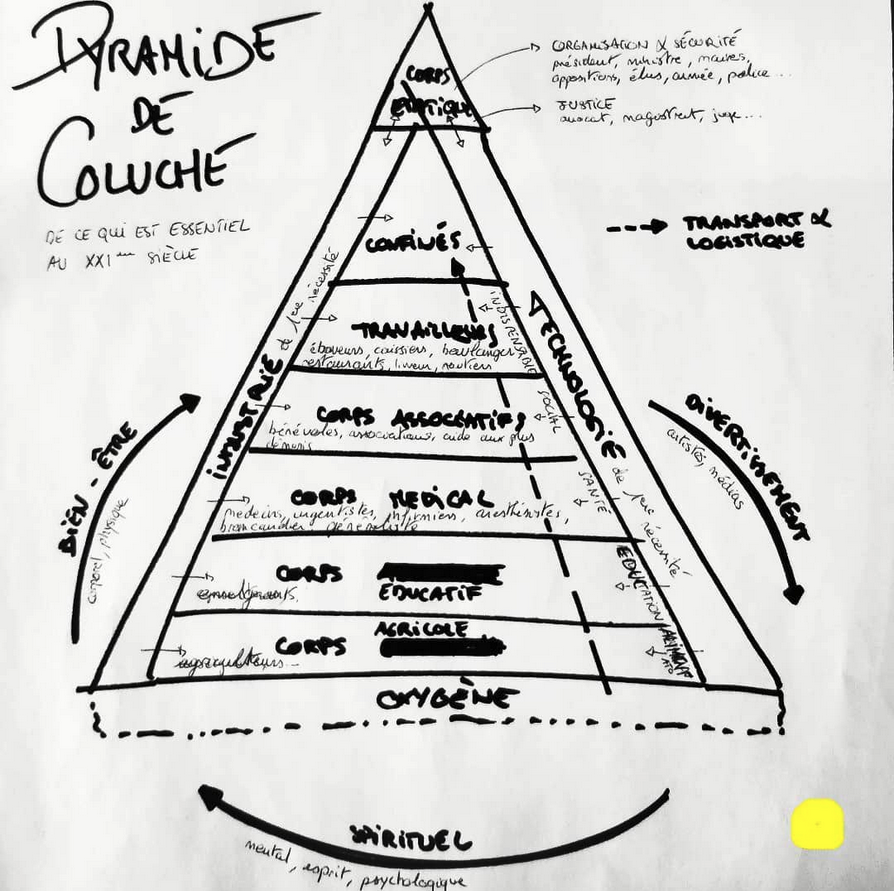 PYRAMIDE
DE
COLUCHE
DE CE QUI EST ESSENTIEL
AU XXIème SIÈCLE
CORPS
ÉTATIQUE
ORGANISATION & SÉCURITÉ
président, ministre, maires,
oppositions, élus, armée, police...
JUSTICE
avocat, magistrat, juge...
TRANSPORT &
LOGISTIQUE
CONFINÉS
TRAVAILLEURS
éboueurs, caissiers, boulanger
restaurants, livreur, routiers
CORPS ASSOCIATIFS
bénévoles, associations, aide aux plus
démunis
CORPS MEDICAL
medecins, urgentistes, infirmiers, anesthésistes,
brancardier, généraliste
CORPS
EDUCATIF
enseignants,
AGRICOLE
CORPS
agriculteurs...
OXYGÈNE
INDUSTRIE de 1ère nécessité
TECHNOLOGIE de 1ère nécessité
INDISPENSABLE
SOCIAL
SANTÉ
EDUCATION
BIEN-ÊTRE
corporel, physique
DIVERTISSEMENT
artistes, médias
SPIRITUEL
mental, esprit, psychologique